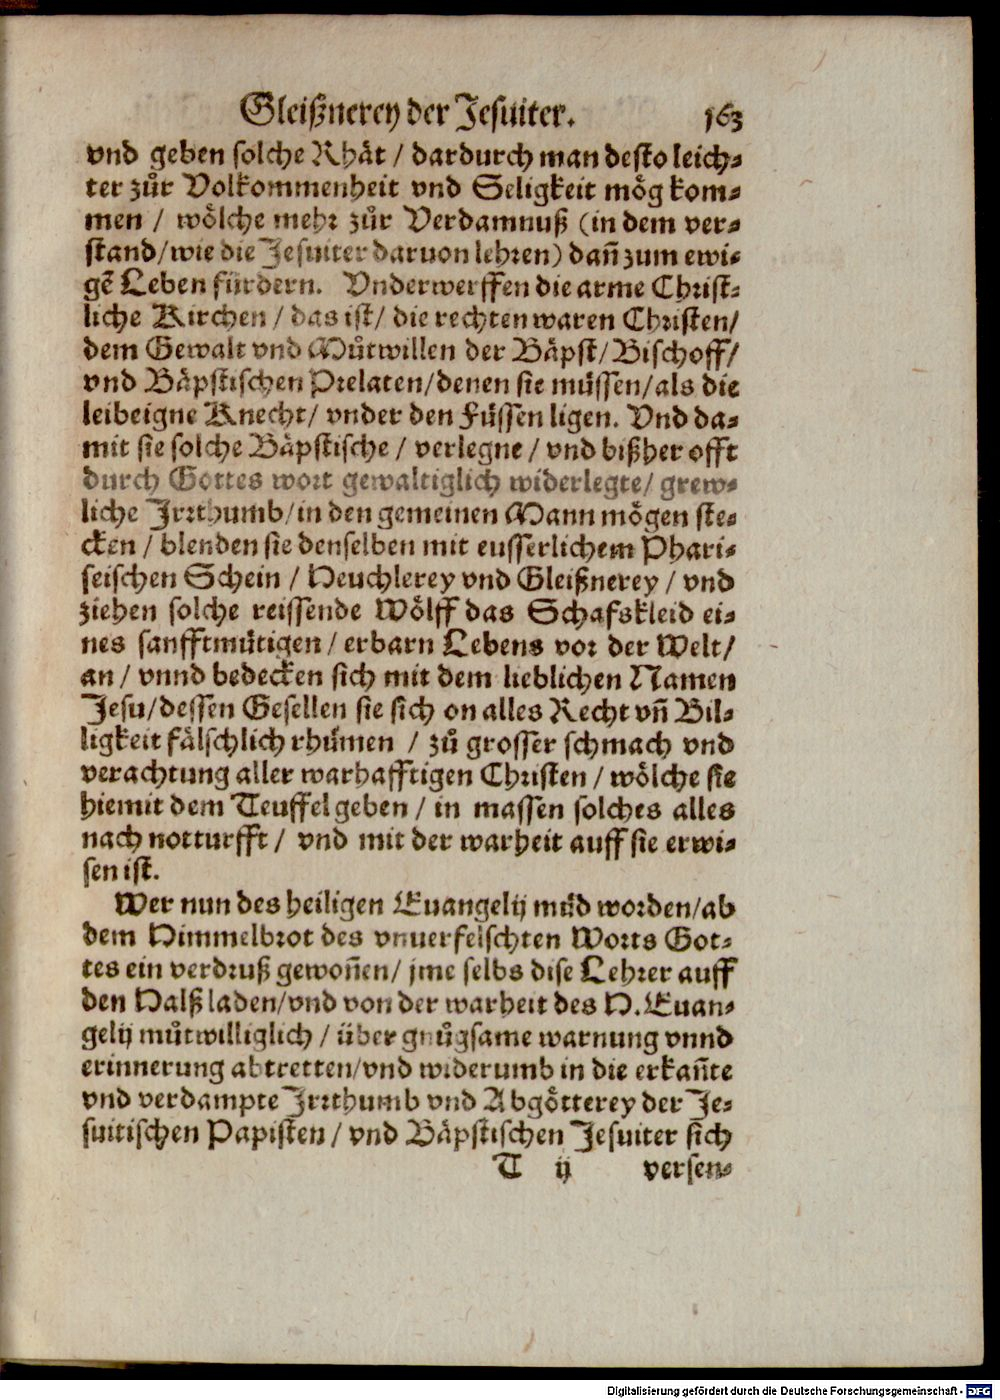 Gleißnerey der Jesuiter. 163
vnd geben solche Rhät / dardurch man desto leich-
ter zůr Volkommenheit vnd Seligkeit mög kom-
men / wölche mehr zůr Verdamnuß (in dem ver-
stand/wie die Jesuiter daruon lehren) dañ zum ewi-
gẽ Leben fürdern. Vnderwerffen die arme Christ-
liche Kirchen / das ist/ die rechten waren Christen/
dem Gewalt vnd Můtwillen der Bäpst/ Bischoff/
vnd Bäpstischen Prelaten/denen sie müssen/als die
leibeigne Knecht/ vnder den Füssen ligen. Vnd da-
mit sie solche Bäpstische / verlegne / vnd bißher offt
durch Gottes wort gewaltiglich widerlegte/ grew-
liche Irrthumb/in den gemeinen Mann mögen ste-
cken / blenden sie denselben mit eusserlichem Phari-
seischen Schein / Heuchlerey vnd Gleißnerey / vnd
ziehen solche reissende Wölff das Schafskleid ei-
nes sanfftmütigen / erbarn Lebens vor der Welt/
an / vnnd bedecken sich mit dem lieblichen Namen
Jesu/dessen Gesellen sie sich on alles Recht vñ Bil-
ligkeit fälschlich rhümen / zů grosser schmach vnd
verachtung aller warhafftigen Christen / wölche sie
hiemit dem Teuffel geben / in massen solches alles
nach notturfft / vnd mit der warheit auff sie erwi-
sen ist.
Wer nun des heiligen Euangelij müd worden/ab
dem Himmelbrot des vnuerfelschten Worts Got-
tes ein verdruß gewoñen/ jme selbs dise Lehrer auff
den Halß laden/vnd von der warheit des H. Euan-
gelij můtwilliglich / über gnůgsame warnung vnnd
erinnerung abtretten/vnd widerumb in die erkañte
vnd verdampte Irrthumb vnd Abgötterey der Je-
suitischen Papisten / vnd Bäpstischen Jesuiter sich
T ij versen-
Digitalisierung gefördert durch die Deutsche Forschungsgemeinschaft - DFG